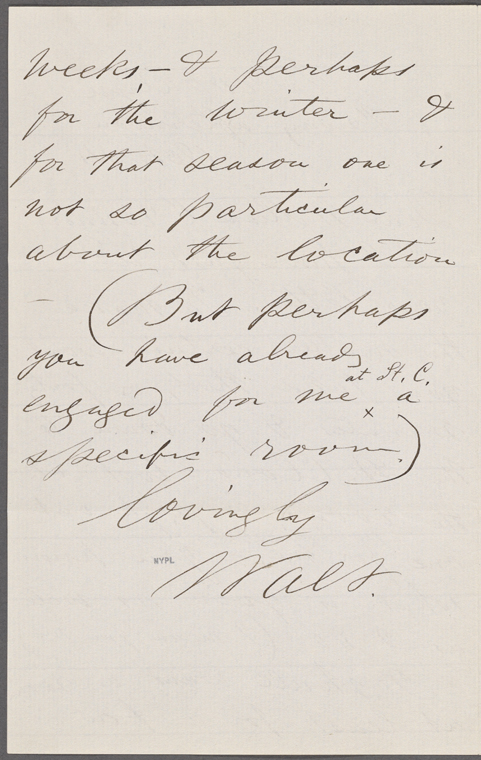 weeks, – & perhaps
for the winter – &
for that season one is
not so particular
about the location
– (But perhaps
you have already
at St. C.
engaged for me x a
specific room.)
lovingly
Walt.
NYPL